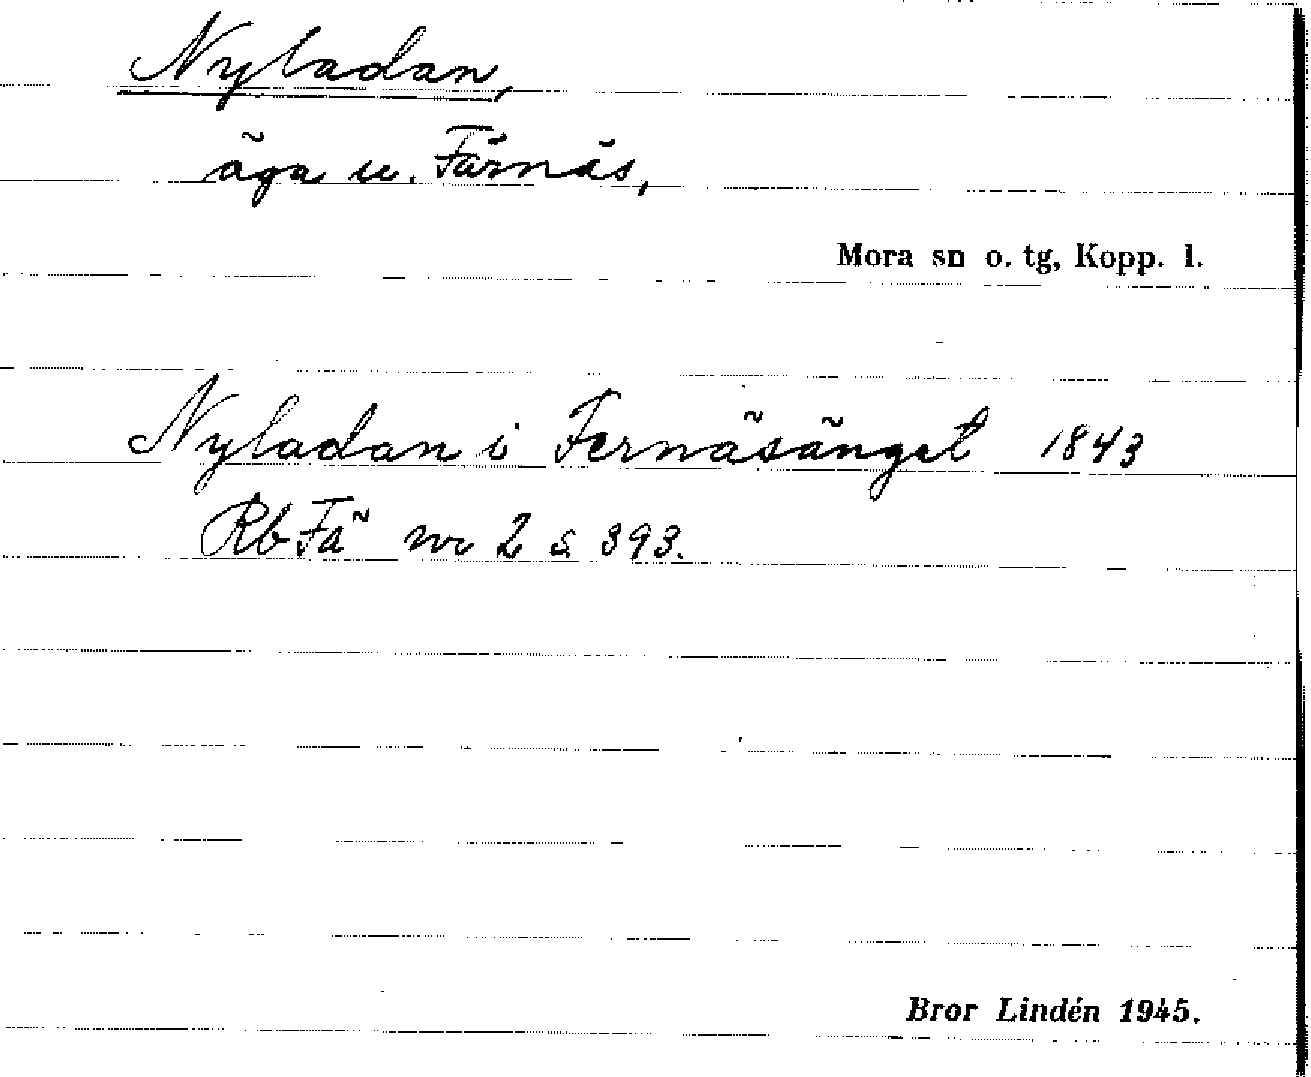 Nyladan,
äga u. Färnäs,
Mora sn o. tg, Kopp. l.
Nyladan i Fernäsänget 1843
Rb Fä nr 2 s. 393.
Bror Lindén 1945.